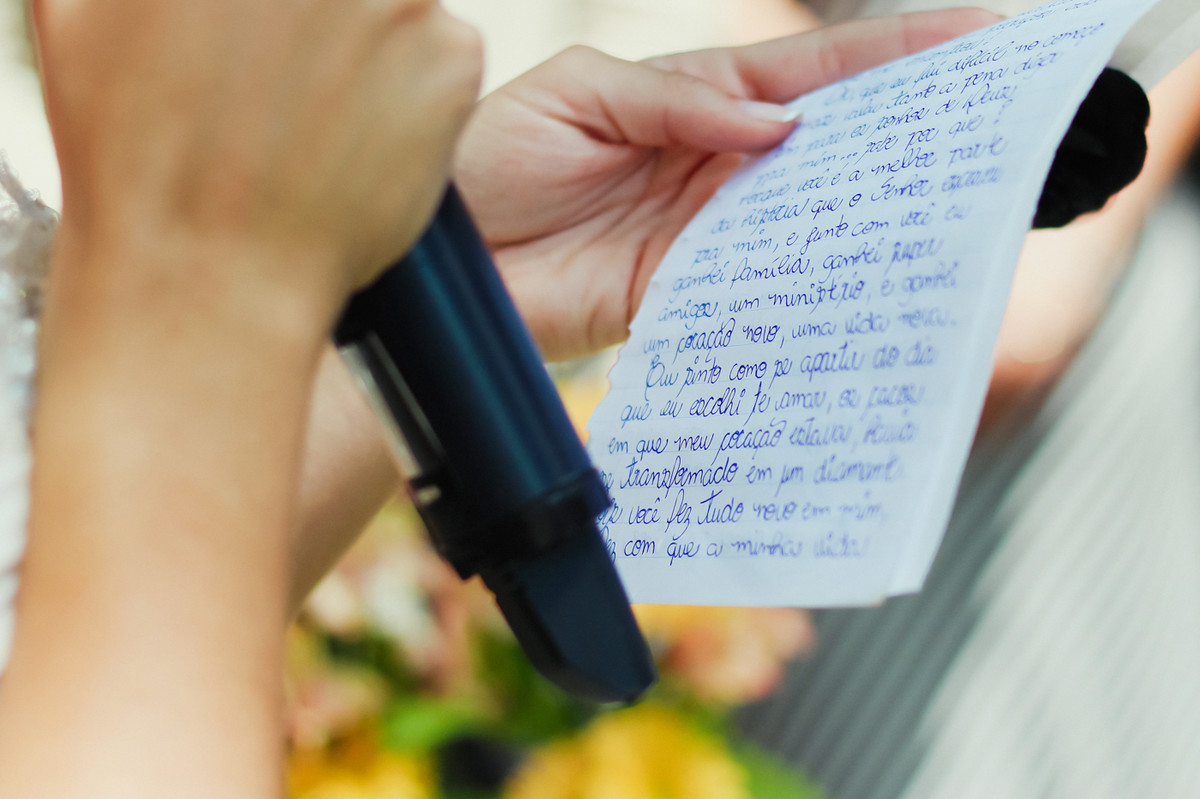 que eu fui difícil no começo
valeu tanto a pena dizer
para os sonhos de Deus
pra mim... sabe por que?
Porque você é a melhor parte
da história que o Senhor
pra mim, e junto com você eu
ganhei família, ganhei super
amigos, um ministério, e ganhei
um coração novo, uma vida nova.
Eu sinto como se apartir do dia
que eu escolhi te amar, os cacos
em que meu coração estava,
se transformado em um diamante
você fez tudo novo em mim,
fez com que a minha vida